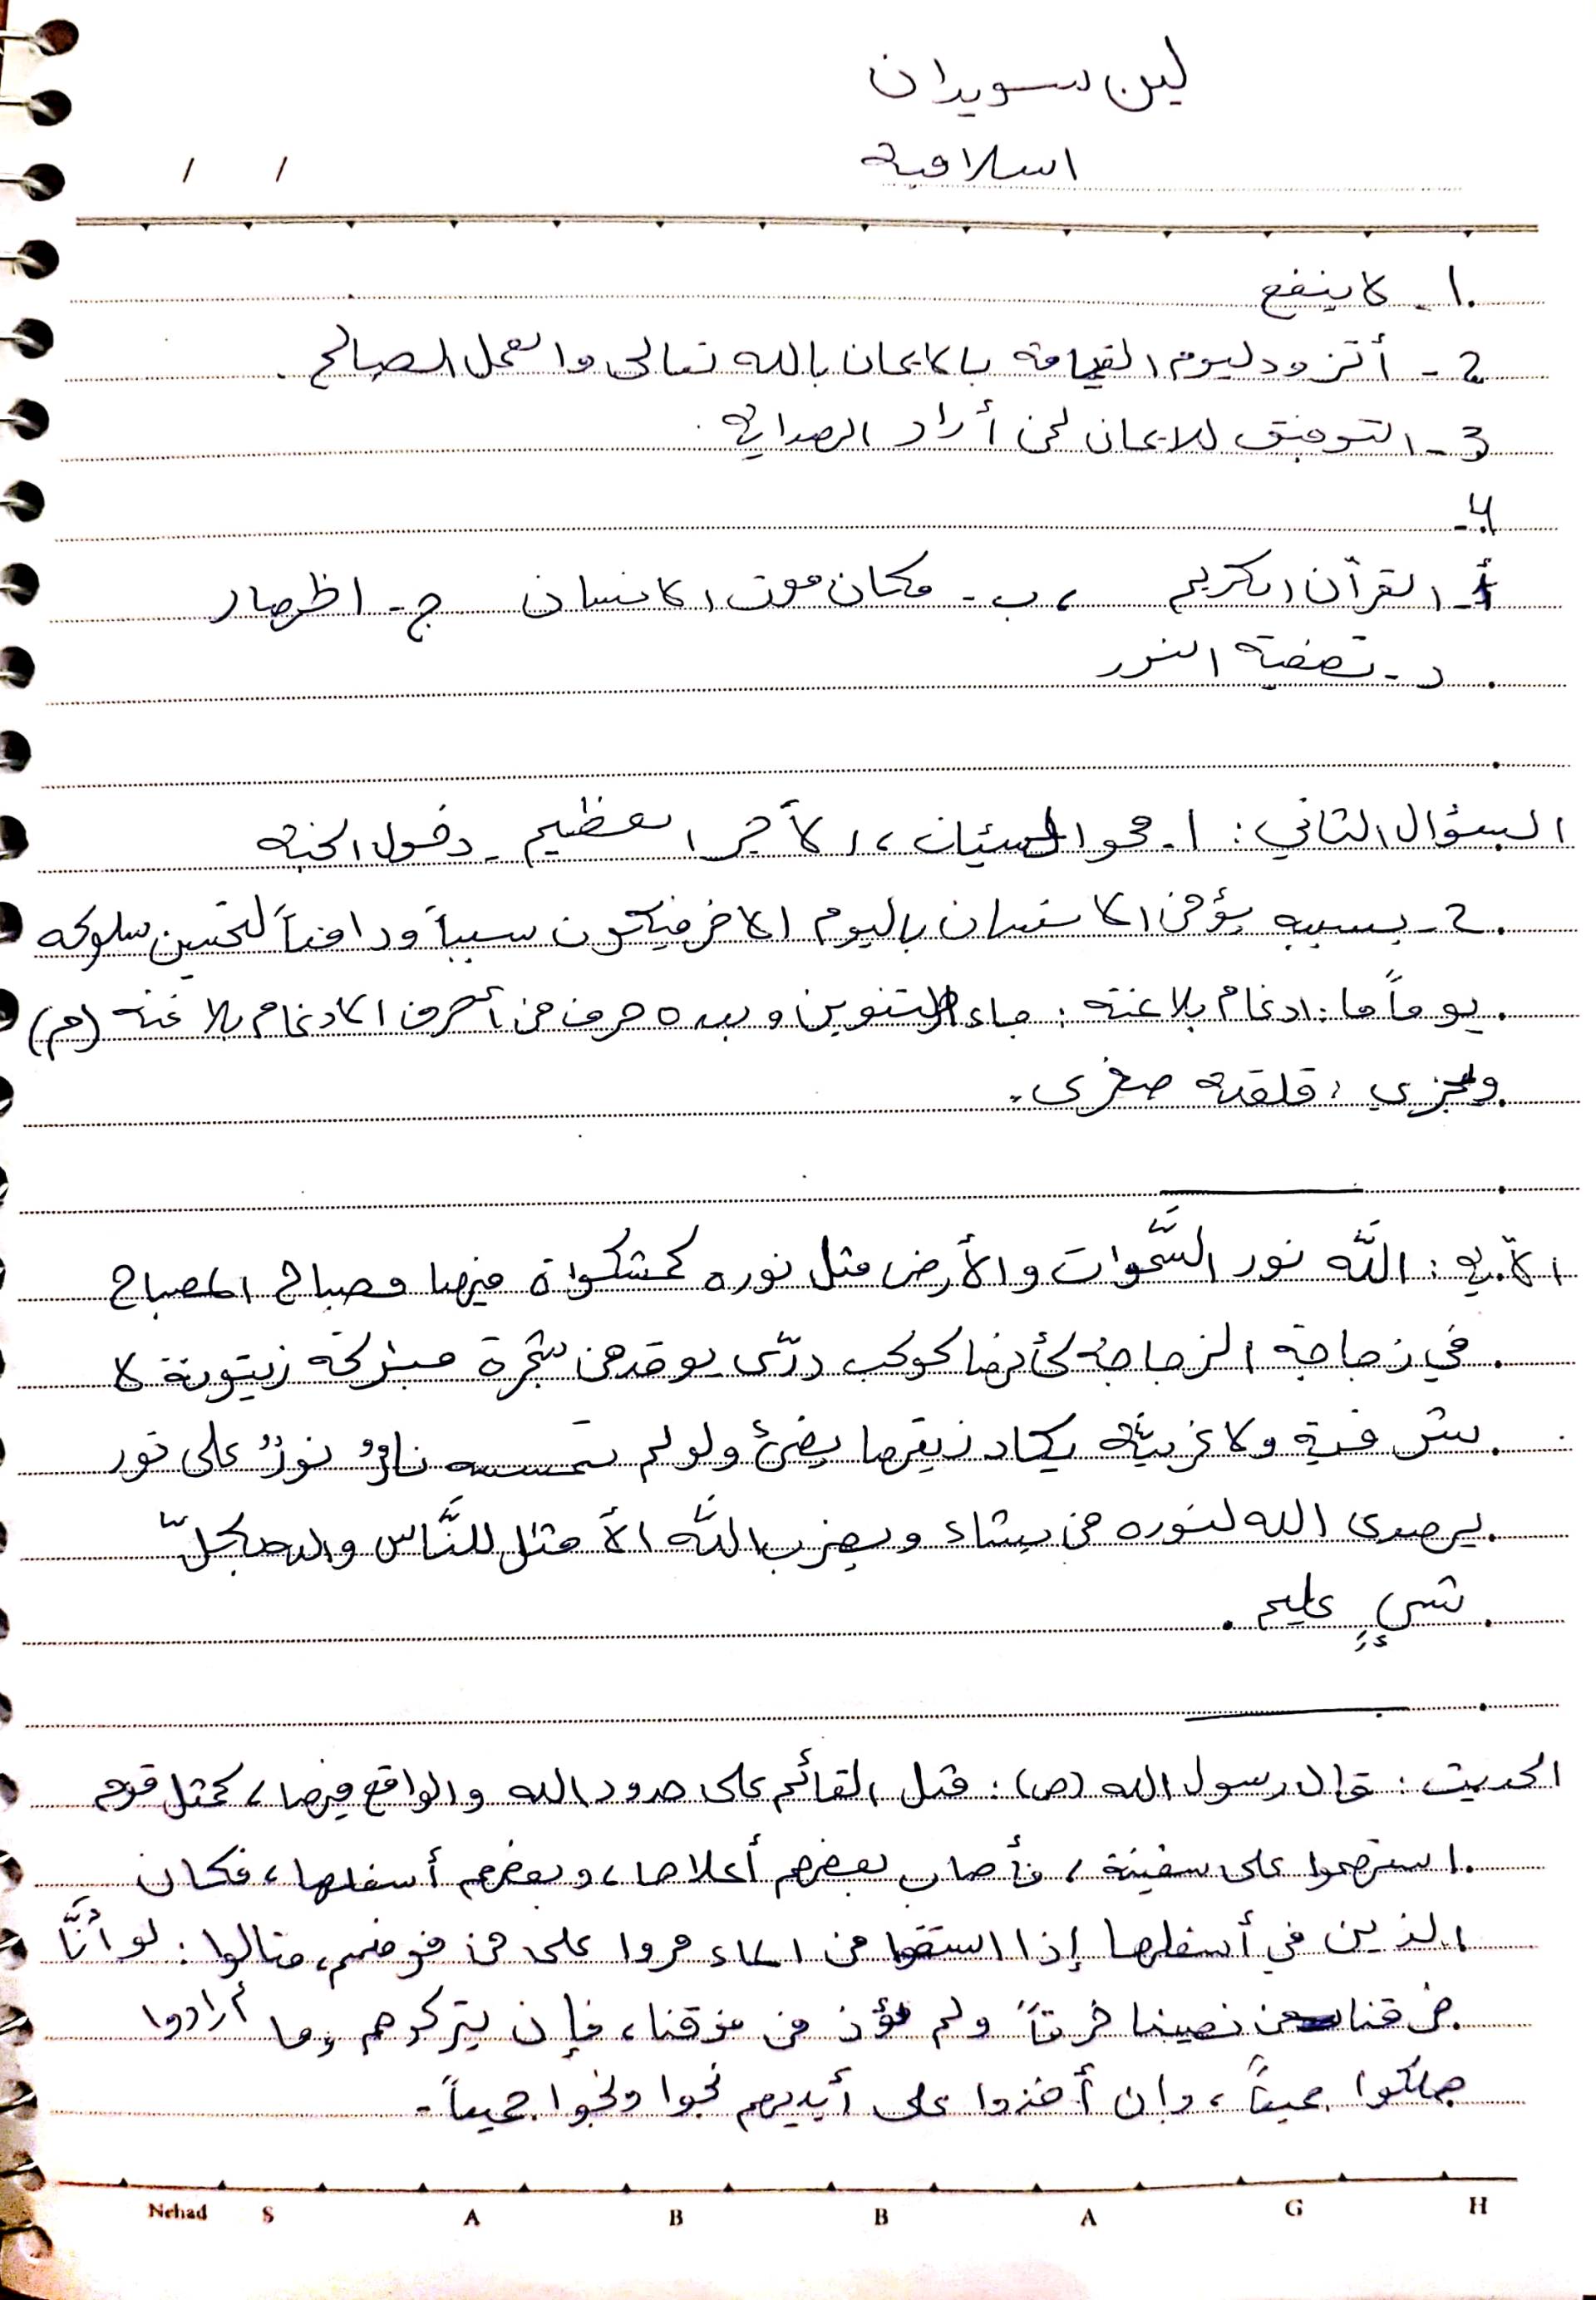 لين سويدان
اسلامية
/ /
1- لا ينفع
2- أتزود ليوم القيامة بالايمان بالله تعالى والعمل الصالح.
3- التوفيق للايمان لمن أراد الهداية.
4-
أ- القرآن الكريم ، ب- مكان موت الانسان ج- اظهار
د- تصفية النور
السؤال الثاني: 1- محو السيئات، الأجر العظيم - دخول الجنة
2- بسببه يؤمن الانسان باليوم الاخر فيكون سبباً ودافعاً لتحسين سلوكه
يوماً ما: ادغام بلا غنة: جاء التنوين وبعده حرف من أحرف الادغام بلا غنة (م)
ويجزي: قلقلة صغرى.
الآية: اللَّه نور السَّموات والأرض مثل نوره كمشكواة فيها مصباح المصباح
في زجاجة الزجاجة كأنها كوكب درّى يوقد من شجرة مبركة زيتونة لا
شرقية ولا غربيَّة يكاد زيتها يضئ ولو لم تمسسه نارٌ نورٌ على نور
يهدى الله لنوره من يشاء ويضرب اللَّه الأمثل للنَّاس والله بكلّ
شيءٍ عليم.
الحديث: قال رسول الله (ص): مثل القائم على حدود الله والواقع فيها، كمثل قوم
استهموا على سفينة، فأصاب بعضهم أعلاها، وبعضهم أسفلها، فكان
الذين في أسفلها إذا استقوا من الماء مروا على من فوقهم، فقالوا: لو أنَّا
خرقنا نصيبنا خرقاً ولم نؤذ من فوقنا، فإن يتركوهم وما أرادوا
هلكوا جميعاً، وإن أخذوا على أيديهم نجوا ونجوا جميعاً.
Nehad S A B B A G H